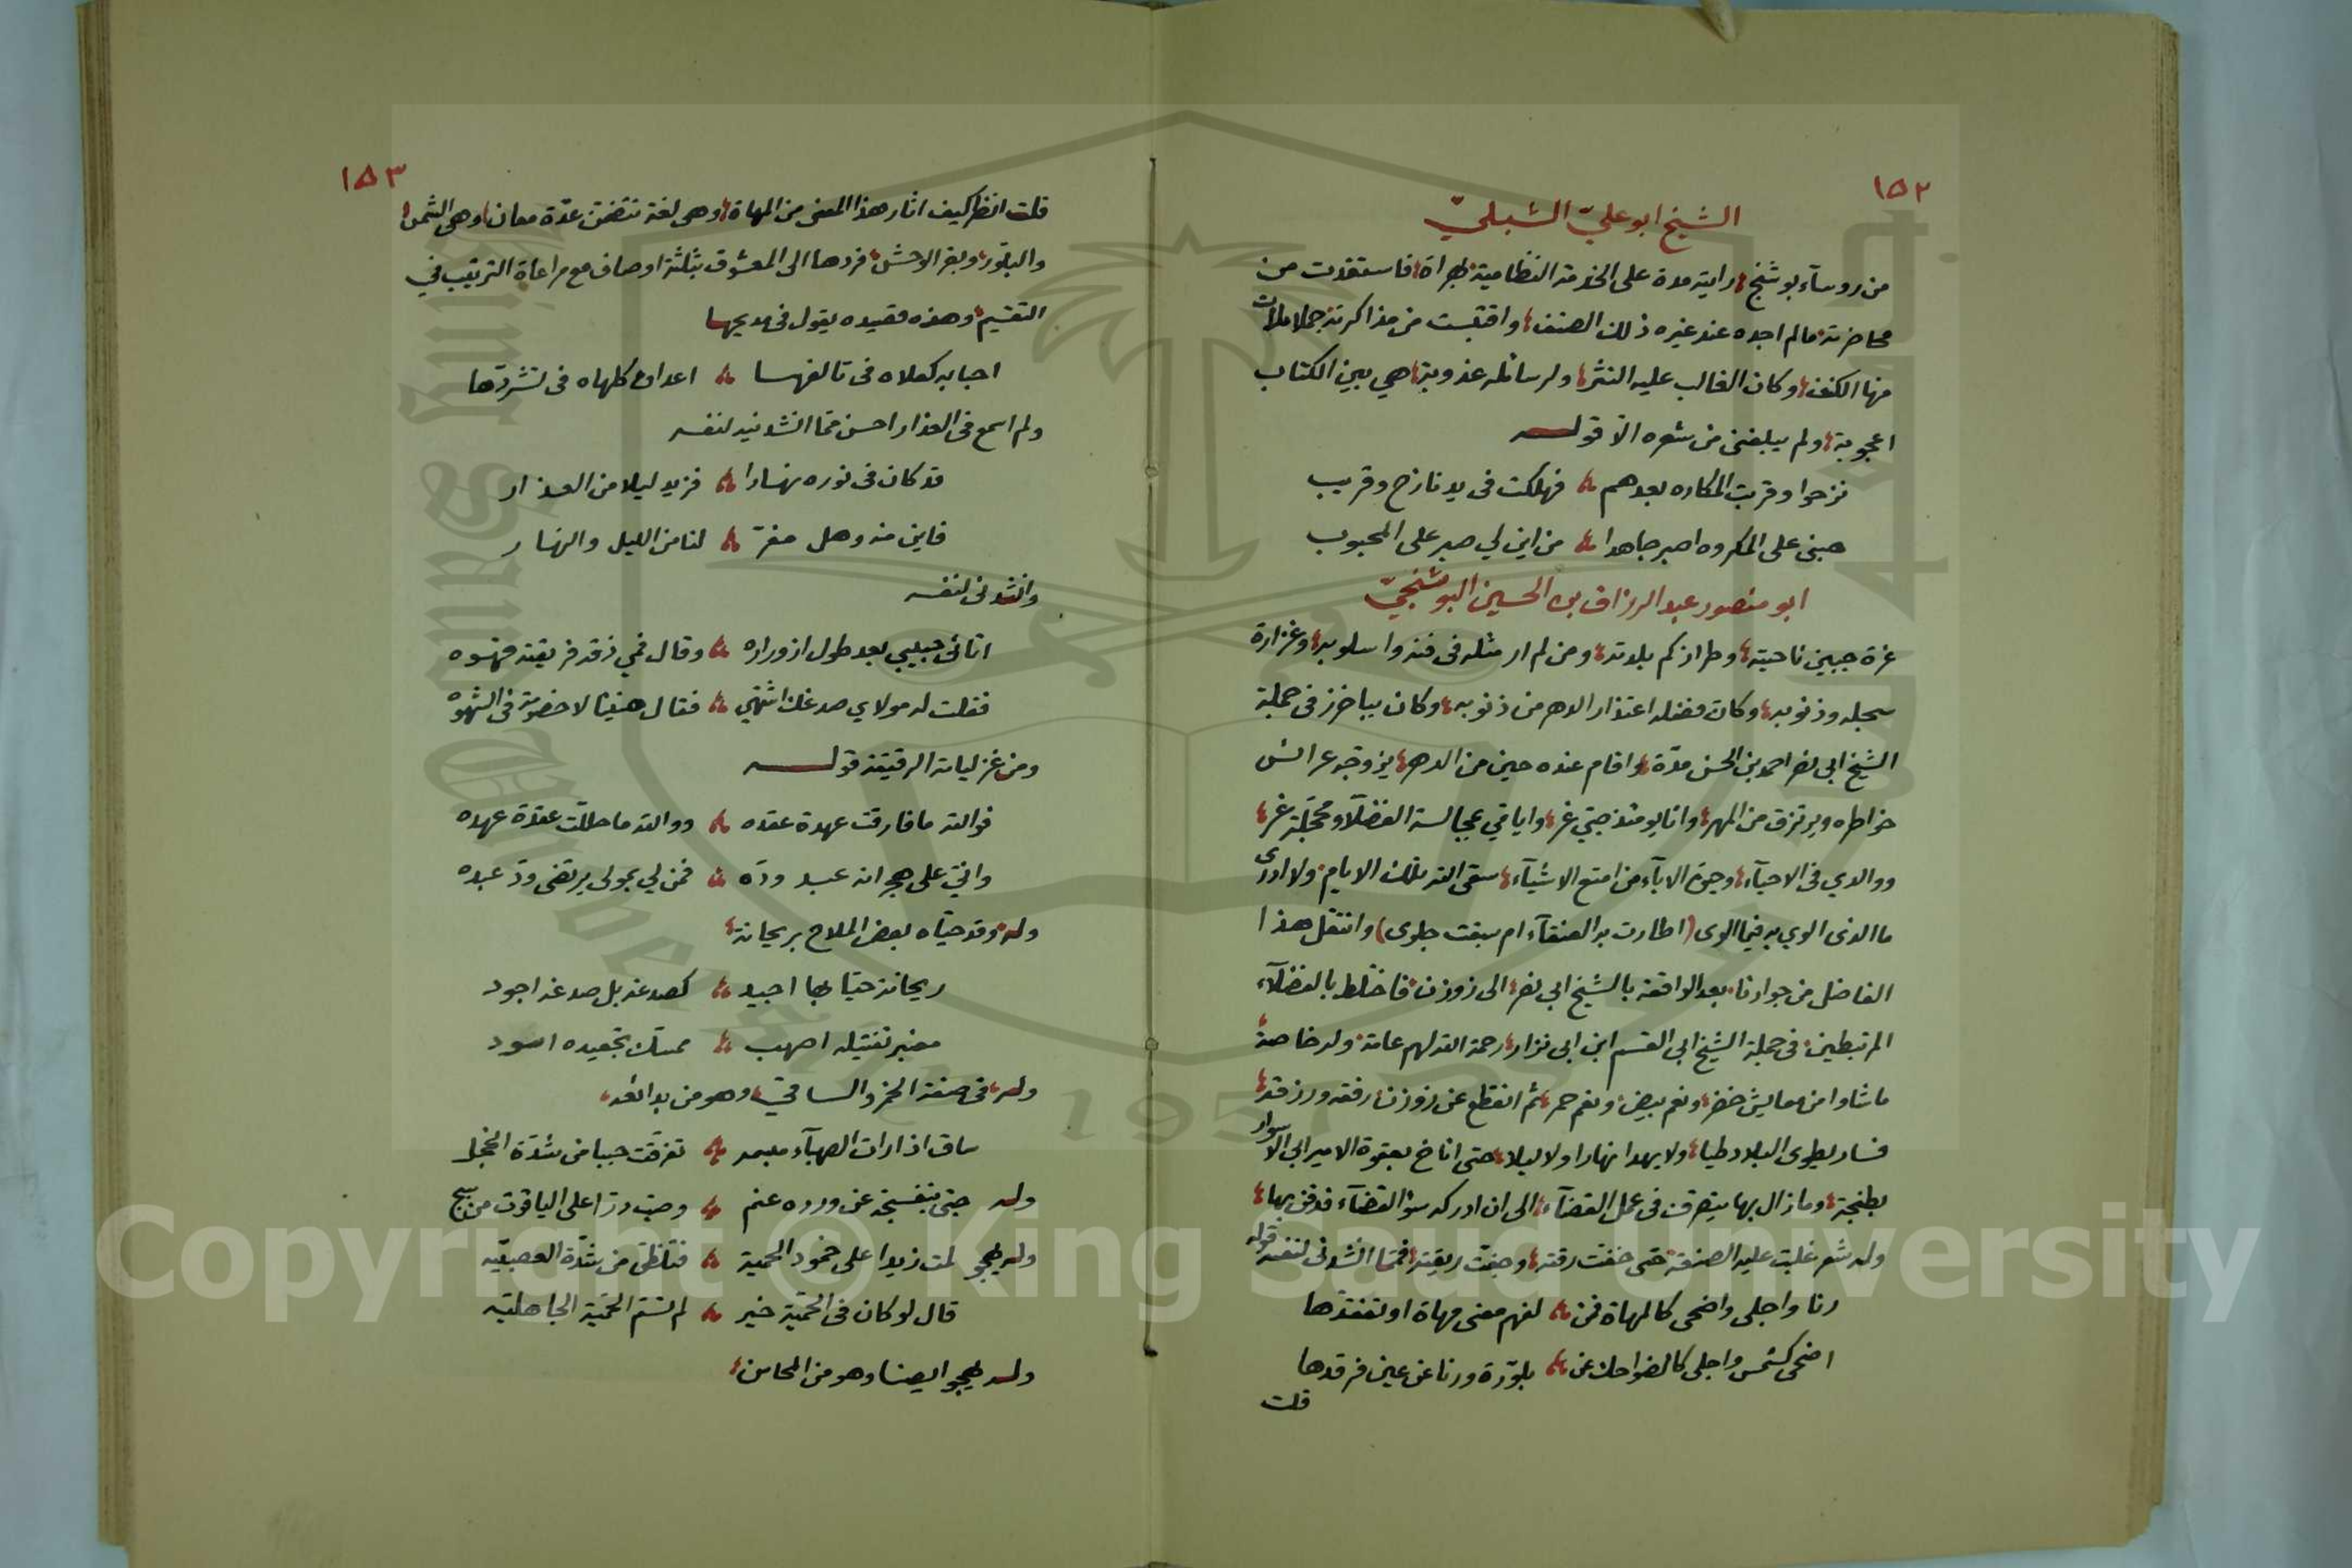 ١٥٢
الشيخ ابو عليّ الشبليّ
من روسآء بوشنج رايته مدة على الخدمة النظامية بهراة فاستفدت من
محاضرته مالم اجده عند غيره ذلك الصنف واقتبست من مذاكرته جملا ملأت
منها الكنف وكان الغالب عليه النثر ولرسائله عذوبة هي بين الكتاب
اعجوبة ولم يبلغنى من شعره الا قوله
نزحوا وقربت المكاره بعدهم فهلكت فى يد نازح وقريب
هبنى على المكروه اصبر جاهدا من اين لي صبر على المحبوب
ابو منصور عبد الرزاق بن الحسين البوشنجيّ
غرة جبين ناحيته وطراز كم بلدته ومن لم ار مثله فى فنه واسلوبه وغزارة
سجله وذنوبه وكان فضله اعتذار الدهر من ذنوبه وكان بباخرز فى جملة
الشيخ ابي نصر احمد بن الحسن مدّة واقام عنده حين من الدهر يزوجه عرائس
خواطره ويرتزق من المهر وانا يومئذ صبي غر وايامي بمجالسة الفضلآء محجلة غر
ووالدي فى الاحيآء وحيوة الابآء من امتع الاشيآء سقى الله تلك الايام ولا ادرى
ما الذى الوي به فيما الوى (اطارت به العنقآء ام سبقت جلوى) وانتقل هذا
الفاضل من جوارنا بعد الواقعة بالشيخ ابي نصر الى زوزن فاختلط بالفضلآء
المرتبطين فى جملة الشيخ ابى القسم ابن ابى نزار رحمة الله لهم عامة وله خاصة
ماشاوا من معايش خضر ونعم بيض ونعم حمر ثم انقطع عن زوزن رفقه ورزقه
فسار يطوى البلاد طيا ولا يهدا نهارا ولا ليلا حتى اناخ بعقوة الامير ابي الاسوار
بطنجة وما زال بها يتصرف فى عمل القضآء الى ان ادركه سؤ القضآء فدفن بها
وله شعر غلبت عليه الصنعة حتى خفت رقته وجفت ريقته فمما انشدنى لنفسه قوله
رنا واجلى واضحى كالمهاة فمن لفهم معنى مهاة او تفقدها
اضحى كشمس واجلى كالضواحك عن بلوّرة ورنا عن عين فرقدها
قلت
١٥٣
قلت انظر كيف اثار هذا المعنى من المهاة وهى لغة تتضمن عدّة معان وهى الشمس
والبلور وبقر الوحش فردها الى المعشوق بثلثة اوصاف مع مراعاة الترتيب في
التقسيم وهذه قصيده يقول فى مديحها
احبابه كعلاه فى تالفها اعداؤه كلهاه فى تشردّها
ولم اسمع فى العذار احسن مما انشدنيه لنفسه
قد كان فى نوره نهارا فزيد ليلا من العذار
فاين منه وهل مفرّ لنا من الليل والنهار
وانشدنى لنفسه
اتانى حبيبي بعد طول ازوراره وقال فمي ذقه فريقته قهوه
فقلت له مولاي صدغك اشتهي فقال هنيئا لا خصومة فى الشهوه
ومن غزلياته الرقيقة قوله
فوالله ما فارقت عهدة عقده ووالله ما حللّت عقدة عهده
وانيّ على هجرانه عبد ودّه فمن لي بمولى يرتضى ودّ عبده
وله وقد حيّاه بعض الملاح بريحانة
ريحانة حيّا بها اجيد كصدغه بل صدغه اجود
معنبر تفتيله اصهب ممسّك تجعيده اسود
وله فى صفة الخمر والساقي وهو من بدائعه
ساق اذا رات الصهبآء مبسمه تفرّقت حببا من شدّة الخجل
وله جنى بنفسجة عن ورده عنم وصبّ درّا على الياقوت من سبج
وله يهجو لمت زيدا على خمود الحميّة فتلظّى من شدّة العصبيّه
قال لو كان فى الحميّة خير لم تسّم الحميّة الجاهليّه
وله يهجو ايضا وهو من المحاسن
Copyright © King Saud University
1957